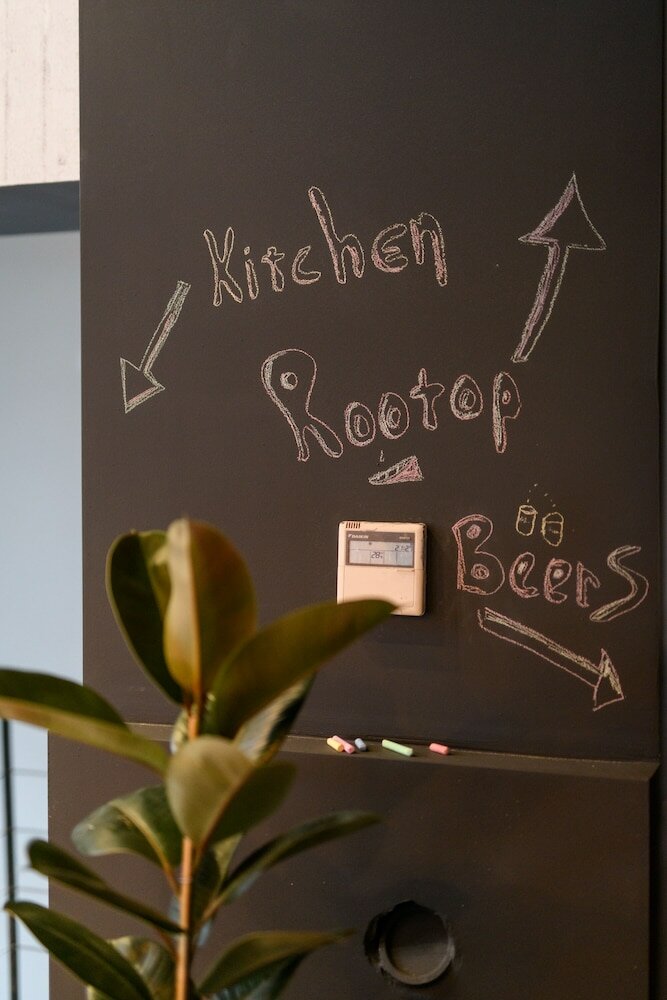 Kitchen
Rootop
DAIKIN
Beers